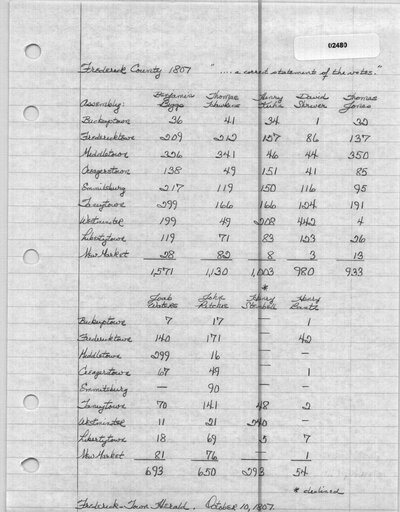 02480
Frederick County 1807 "....a correct statement of the votes."
Benjamin Thomas Henry David Thomas
Assembly: Biggs Hawkins Kuhn Shriver Jones
Buckeystown 36 41 34 1 32
Fredericktown 209 212 157 86 137
Middletown 326 341 46 44 350
Creagerstown 138 49 151 41 85
Emmitsburg 217 119 150 116 95
Taneytown 299 166 166 124 191
Westminster 199 49 208 442 4
Libertytown 119 71 83 123 26
New Market 28 82 8 3 13
1,571 1,130 1,003 980 933
*
Joab John Henry Henry
Waters Ritchie Stembell Bantz
Buckeystown 7 17 — 1
Fredericktown 140 171 — 42
Middletown 299 16 — —
Creagerstown 67 49 — 1
Emmitsburg — 90 — —
Taneytown 70 141 48 2
Westminster 11 21 240 —
Libertytown 18 69 5 7
New Market 81 76 — 1
693 650 293 54
* declined
Frederick-Town Herald, October 10, 1807.